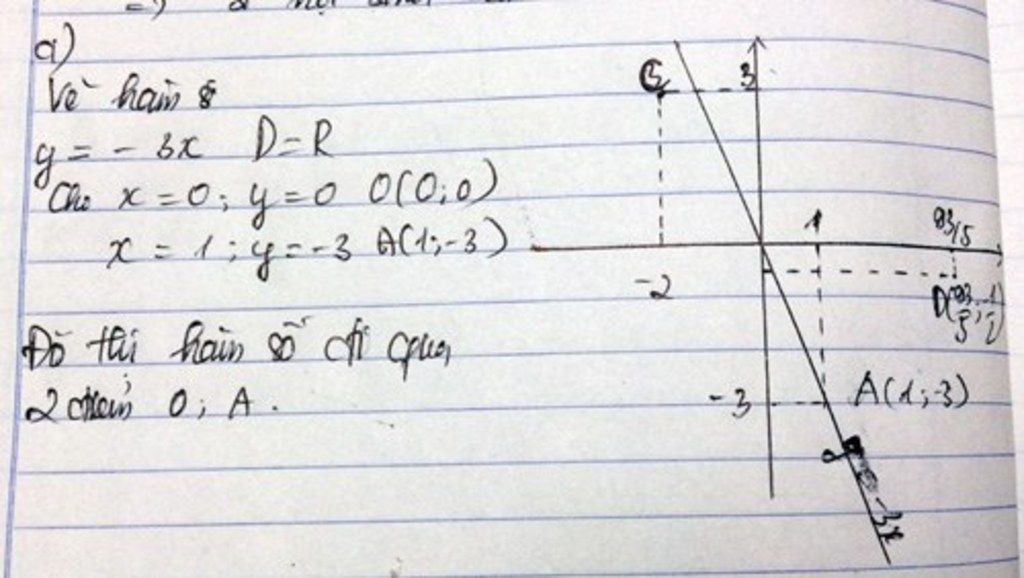 a)
Vẽ hàm số
y = - 3x D = R
Cho x = 0 ; y = 0 O(0;0)
x = 1 ; y = -3 A(1;-3)
Đồ thị hàm số đi qua
2 điểm O ; A .
3
1
-2
-3
A(1;-3)